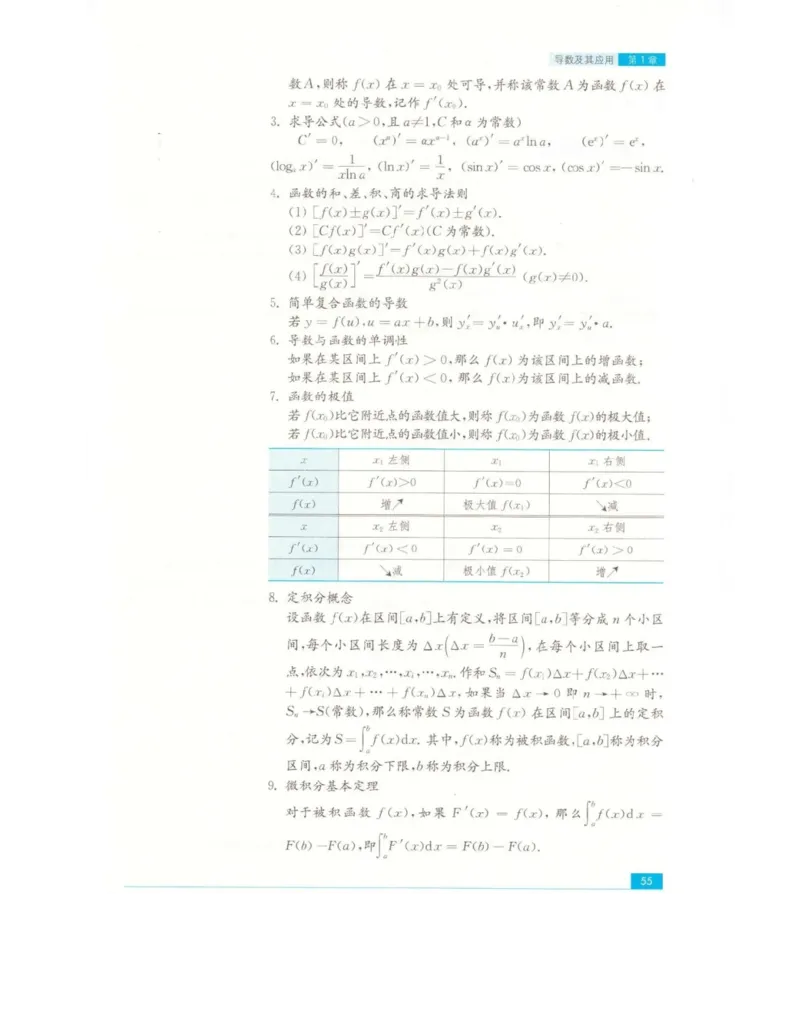 导数及其应用 第1章
数A,则称 f(x) 在 x = x₀ 处可导,并称该常数 A 为函数 f(x) 在
x = x₀ 处的导数,记作 f′(x₀).
3. 求导公式(a>0,且 a≠1,C 和 α 为常数)
C′ = 0, (xᵅ)′ = αxᵅ⁻¹, (aˣ)′ = aˣln a, (eˣ)′ = eˣ,
(logₐ x)′ = 1/(xln a), (ln x)′ = 1/x, (sin x)′ = cos x, (cos x)′ = −sin x.
4. 函数的和、差、积、商的求导法则
(1) [f(x)±g(x)]′=f′(x)±g′(x).
(2) [Cf(x)]′=Cf′(x)(C 为常数).
(3) [f(x)g(x)]′=f′(x)g(x)+f(x)g′(x).
(4) [f(x)/g(x)]′ = (f′(x)g(x)−f(x)g′(x))/g²(x) (g(x)≠0).
5. 简单复合函数的导数
若 y = f(u),u = ax+b,则 y′ₓ = y′ᵤ · u′ₓ,即 y′ₓ = y′ᵤ · a.
6. 导数与函数的单调性
如果在某区间上 f′(x) > 0,那么 f(x) 为该区间上的增函数;
如果在某区间上 f′(x) < 0, 那么 f(x)为该区间上的减函数.
7. 函数的极值
若 f(x₀)比它附近点的函数值大,则称 f(x₀)为函数 f(x)的极大值;
若 f(x₀)比它附近点的函数值小,则称 f(x₀)为函数 f(x)的极小值.
x x₁ 左侧 x₁ x₁ 右侧
f′(x) f′(x)>0 f′(x)=0 f′(x)<0
f(x) 增↗ 极大值 f(x₁) ↘减
x x₂ 左侧 x₂ x₂ 右侧
f′(x) f′(x) < 0 f′(x) = 0 f′(x) > 0
f(x) ↘减 极小值 f(x₂) 增↗
8. 定积分概念
设函数 f(x)在区间[a,b]上有定义,将区间[a,b]等分成 n 个小区
间,每个小区间长度为 Δx(Δx = (b−a)/n),在每个小区间上取一
点,依次为 x₁,x₂,⋯,xᵢ,⋯,xₙ. 作和 Sₙ = f(x₁)Δx+f(x₂)Δx+⋯
+ f(xᵢ)Δx + ⋯ + f(xₙ)Δx, 如果当 Δx → 0 即 n → + ∞ 时,
Sₙ →S(常数),那么称常数 S 为函数 f(x) 在区间[a,b] 上的定积
分,记为 S= ∫ₐᵇ f(x)dx. 其中,f(x)称为被积函数,[a,b]称为积分
区间,a 称为积分下限,b 称为积分上限.
9. 微积分基本定理
对于被积函数 f(x),如果 F′(x) = f(x), 那么∫ₐᵇ f(x)dx =
F(b) −F(a),即∫ₐᵇ F′(x)dx = F(b) − F(a).
55